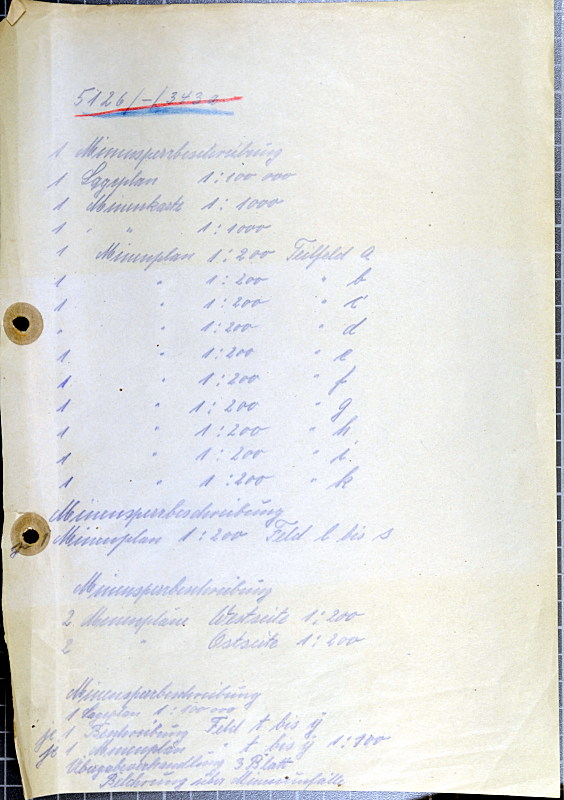 5126/-/343a
1 Minensperrbeschreibung
1 Lageplan 1:100 000
1 Minenkarte 1:1000
1 " " 1:1000
1 Minenplan 1:200 Teilfeld a
1 " 1:200 " b
1 " 1:200 " c
" " 1:200 " d
1 " 1:200 " e
1 " 1:200 " f
1 " 1:200 " g
1 " 1:200 " h
1 " 1:200 " i
1 " 1:200 " k
Minensperrbeschreibung
je 1 Minenplan 1:200 Feld l bis s
Minensperrbeschreibung
2 Minenpläne Westseite 1:200
2 " Ostseite 1:200
Minensperrbeschreibung
1 Lageplan 1:100 000
je 1 Beschreibung Feld t bis y
je 1 Minenplan " t bis y 1:100
Übergabeverhandlung 3 Blatt
Belehrung über Minenunfälle